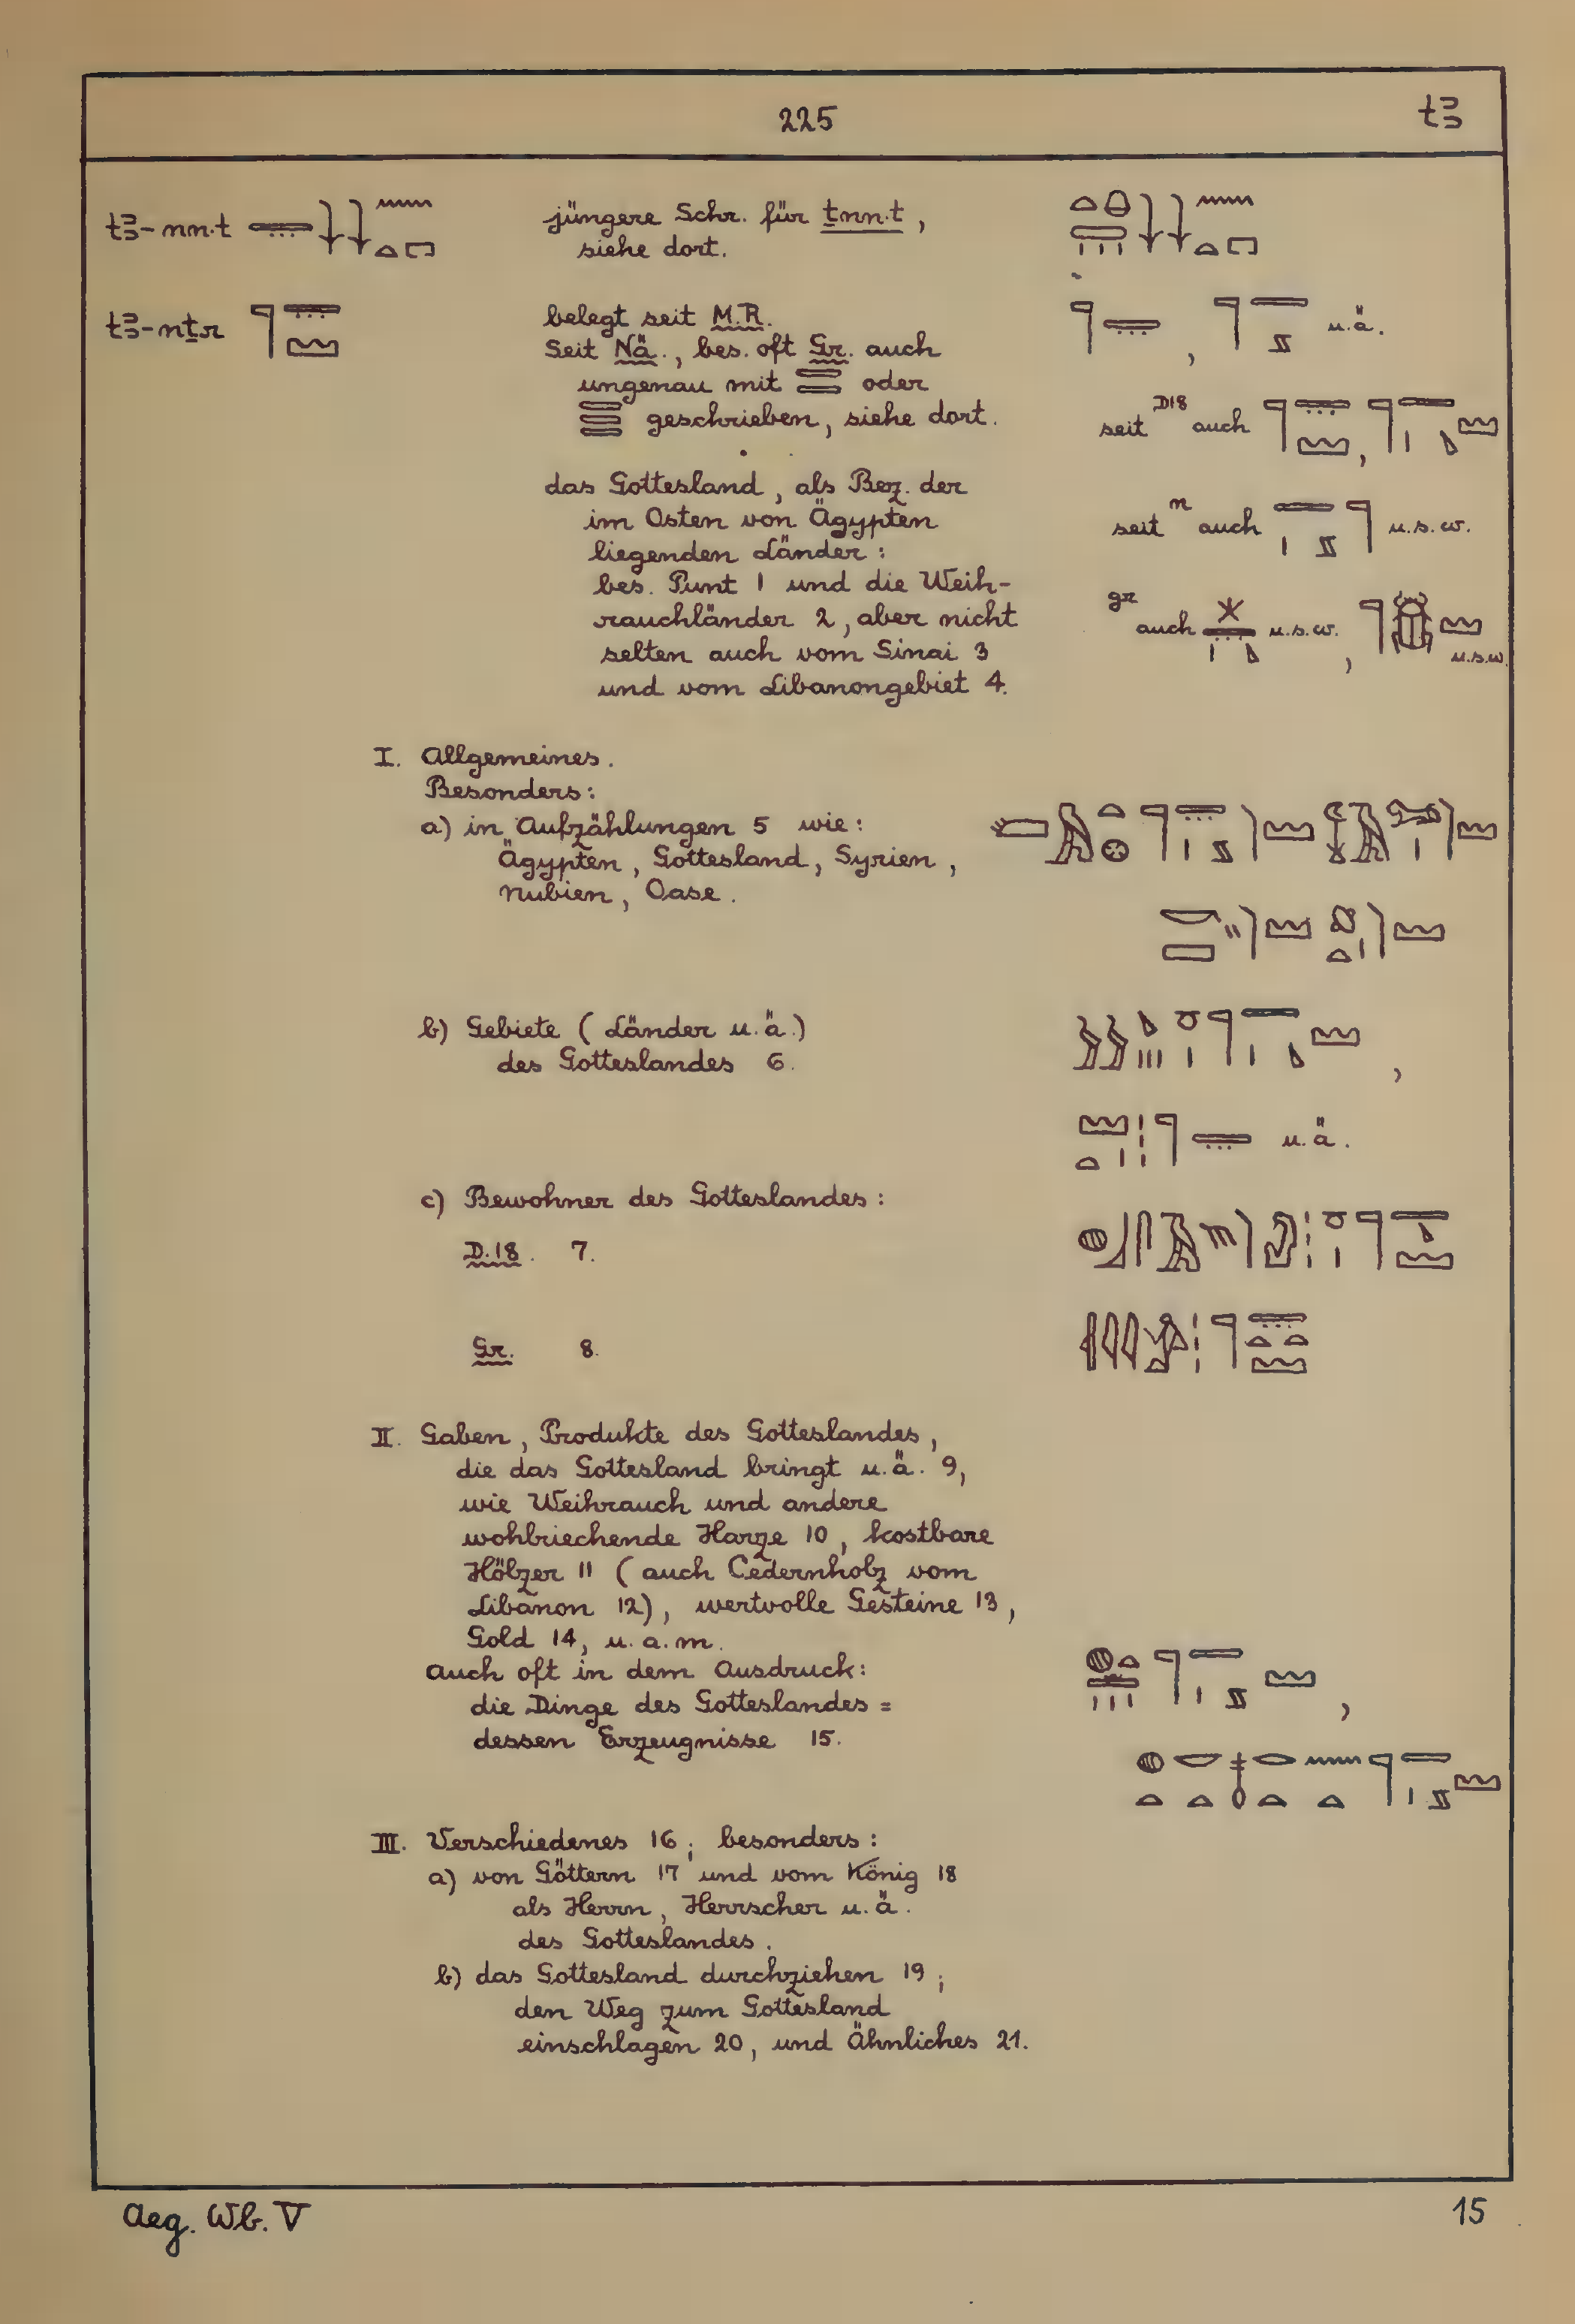 225
tꜣ
tꜣ-nn.t
jüngere Schr. für ṯnn.t,
siehe dort.
tꜣ-nṯr
belegt seit M.R.
Seit Nä., bes. oft Gr. auch
ungenau mit 𓇾𓇾 oder
𓇾𓇾𓇾 geschrieben, siehe dort.
u.ä.
seit D18 auch
das Gottesland, als Bez. der
im Osten von Ägypten
liegenden Länder:
bes. Punt 1 und die Weih-
rauchländer 2, aber nicht
selten auch vom Sinai 3
und vom Libanongebiet 4.
seit n auch u.s.w.
gr auch u.s.w. , u.s.w.
I. Allgemeines.
Besonders:
a) in Aufzählungen 5 wie:
Ägypten, Gottesland, Syrien,
Nubien, Oase.
b) Gebiete (Länder u.ä.)
des Gotteslandes 6.
u.ä.
c) Bewohner des Gotteslandes:
D.18. 7.
Gr. 8.
II. Gaben, Produkte des Gotteslandes,
die das Gottesland bringt u.ä. 9,
wie Weihrauch und andere
wohlriechende Harze 10, kostbare
Hölzer 11 (auch Cedernholz vom
Libanon 12), wertvolle Gesteine 13,
Gold 14, u.a.m.
Auch oft in dem Ausdruck:
die Dinge des Gotteslandes =
dessen Erzeugnisse 15.
III. Verschiedenes 16; besonders:
a) von Göttern 17 und vom König 18
als Herrn, Herrscher u.ä.
des Gotteslandes.
b) das Gottesland durchziehen 19;
den Weg zum Gottesland
einschlagen 20, und Ähnliches 21.
Aeg. Wb. V
15